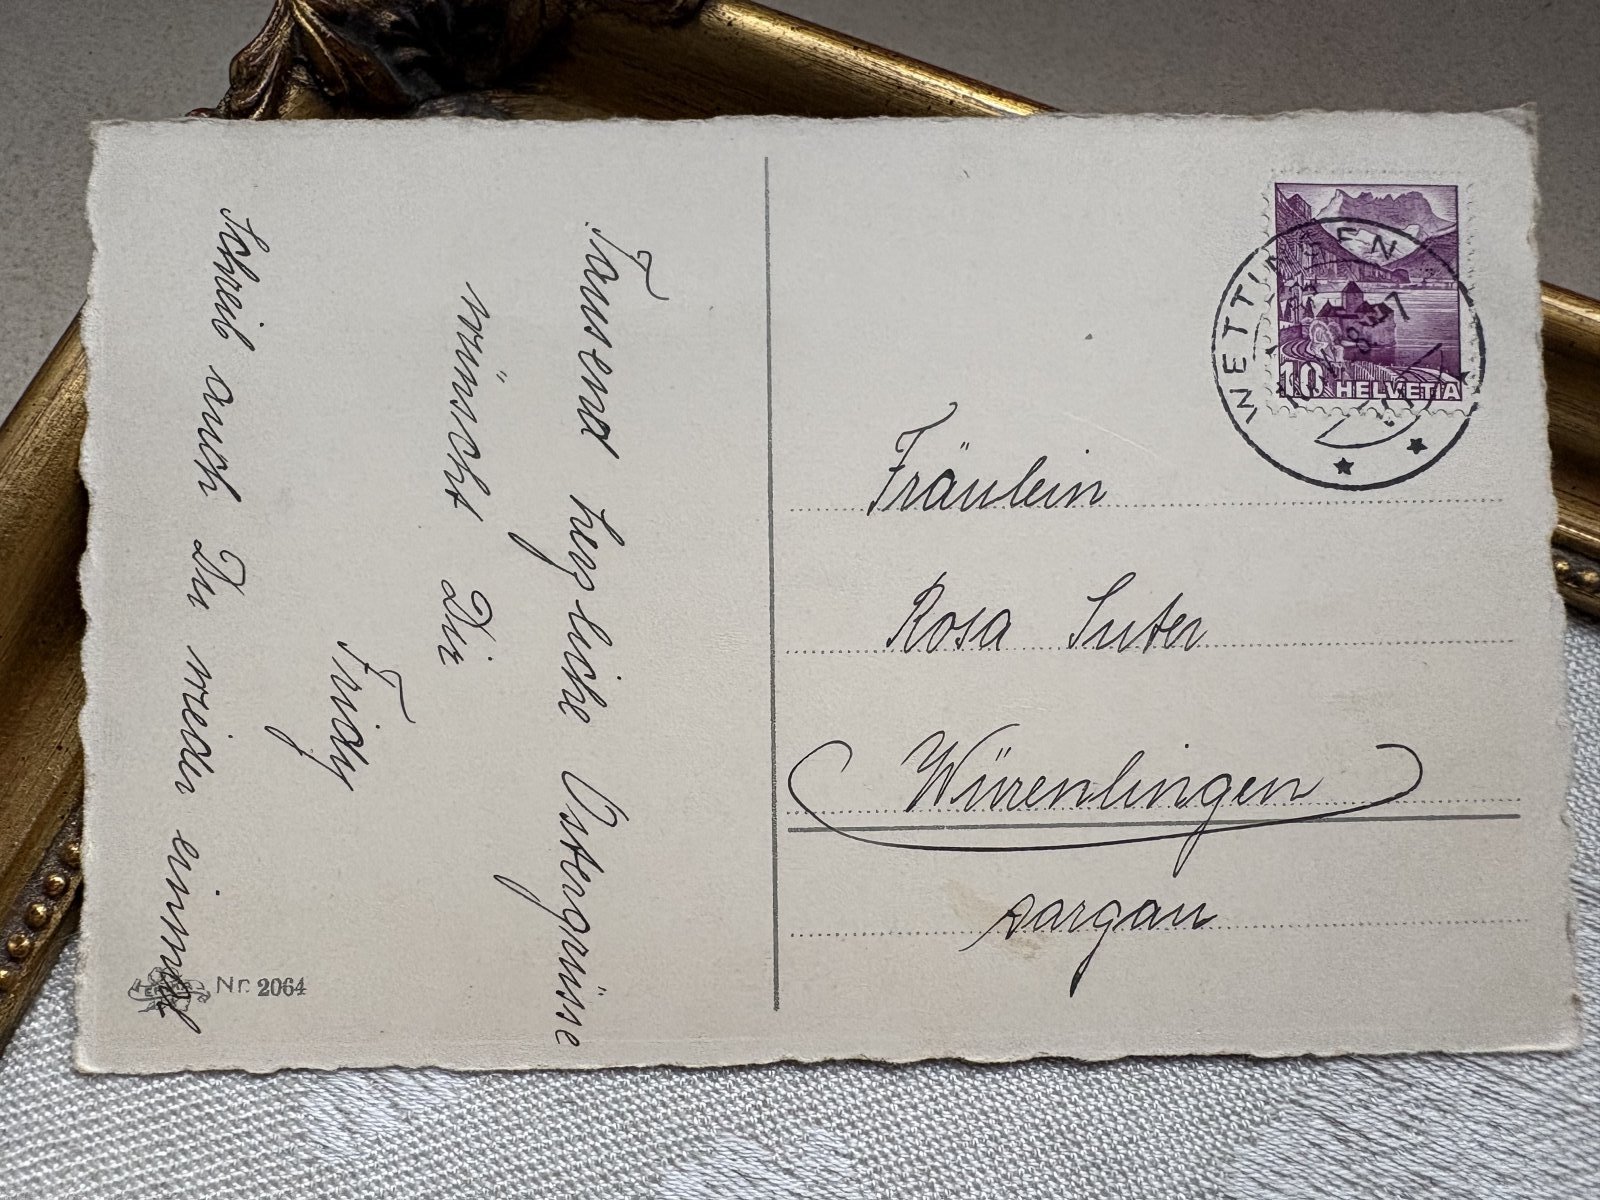 Tausend herzliche Ostergrüsse
wünscht Dir
Fridy
Schreib auch Du wieder einmal
Nr. 2064
WETTINGEN
10 HELVETIA
Fräulein
Rosa Suter
Würenlingen
Aargau